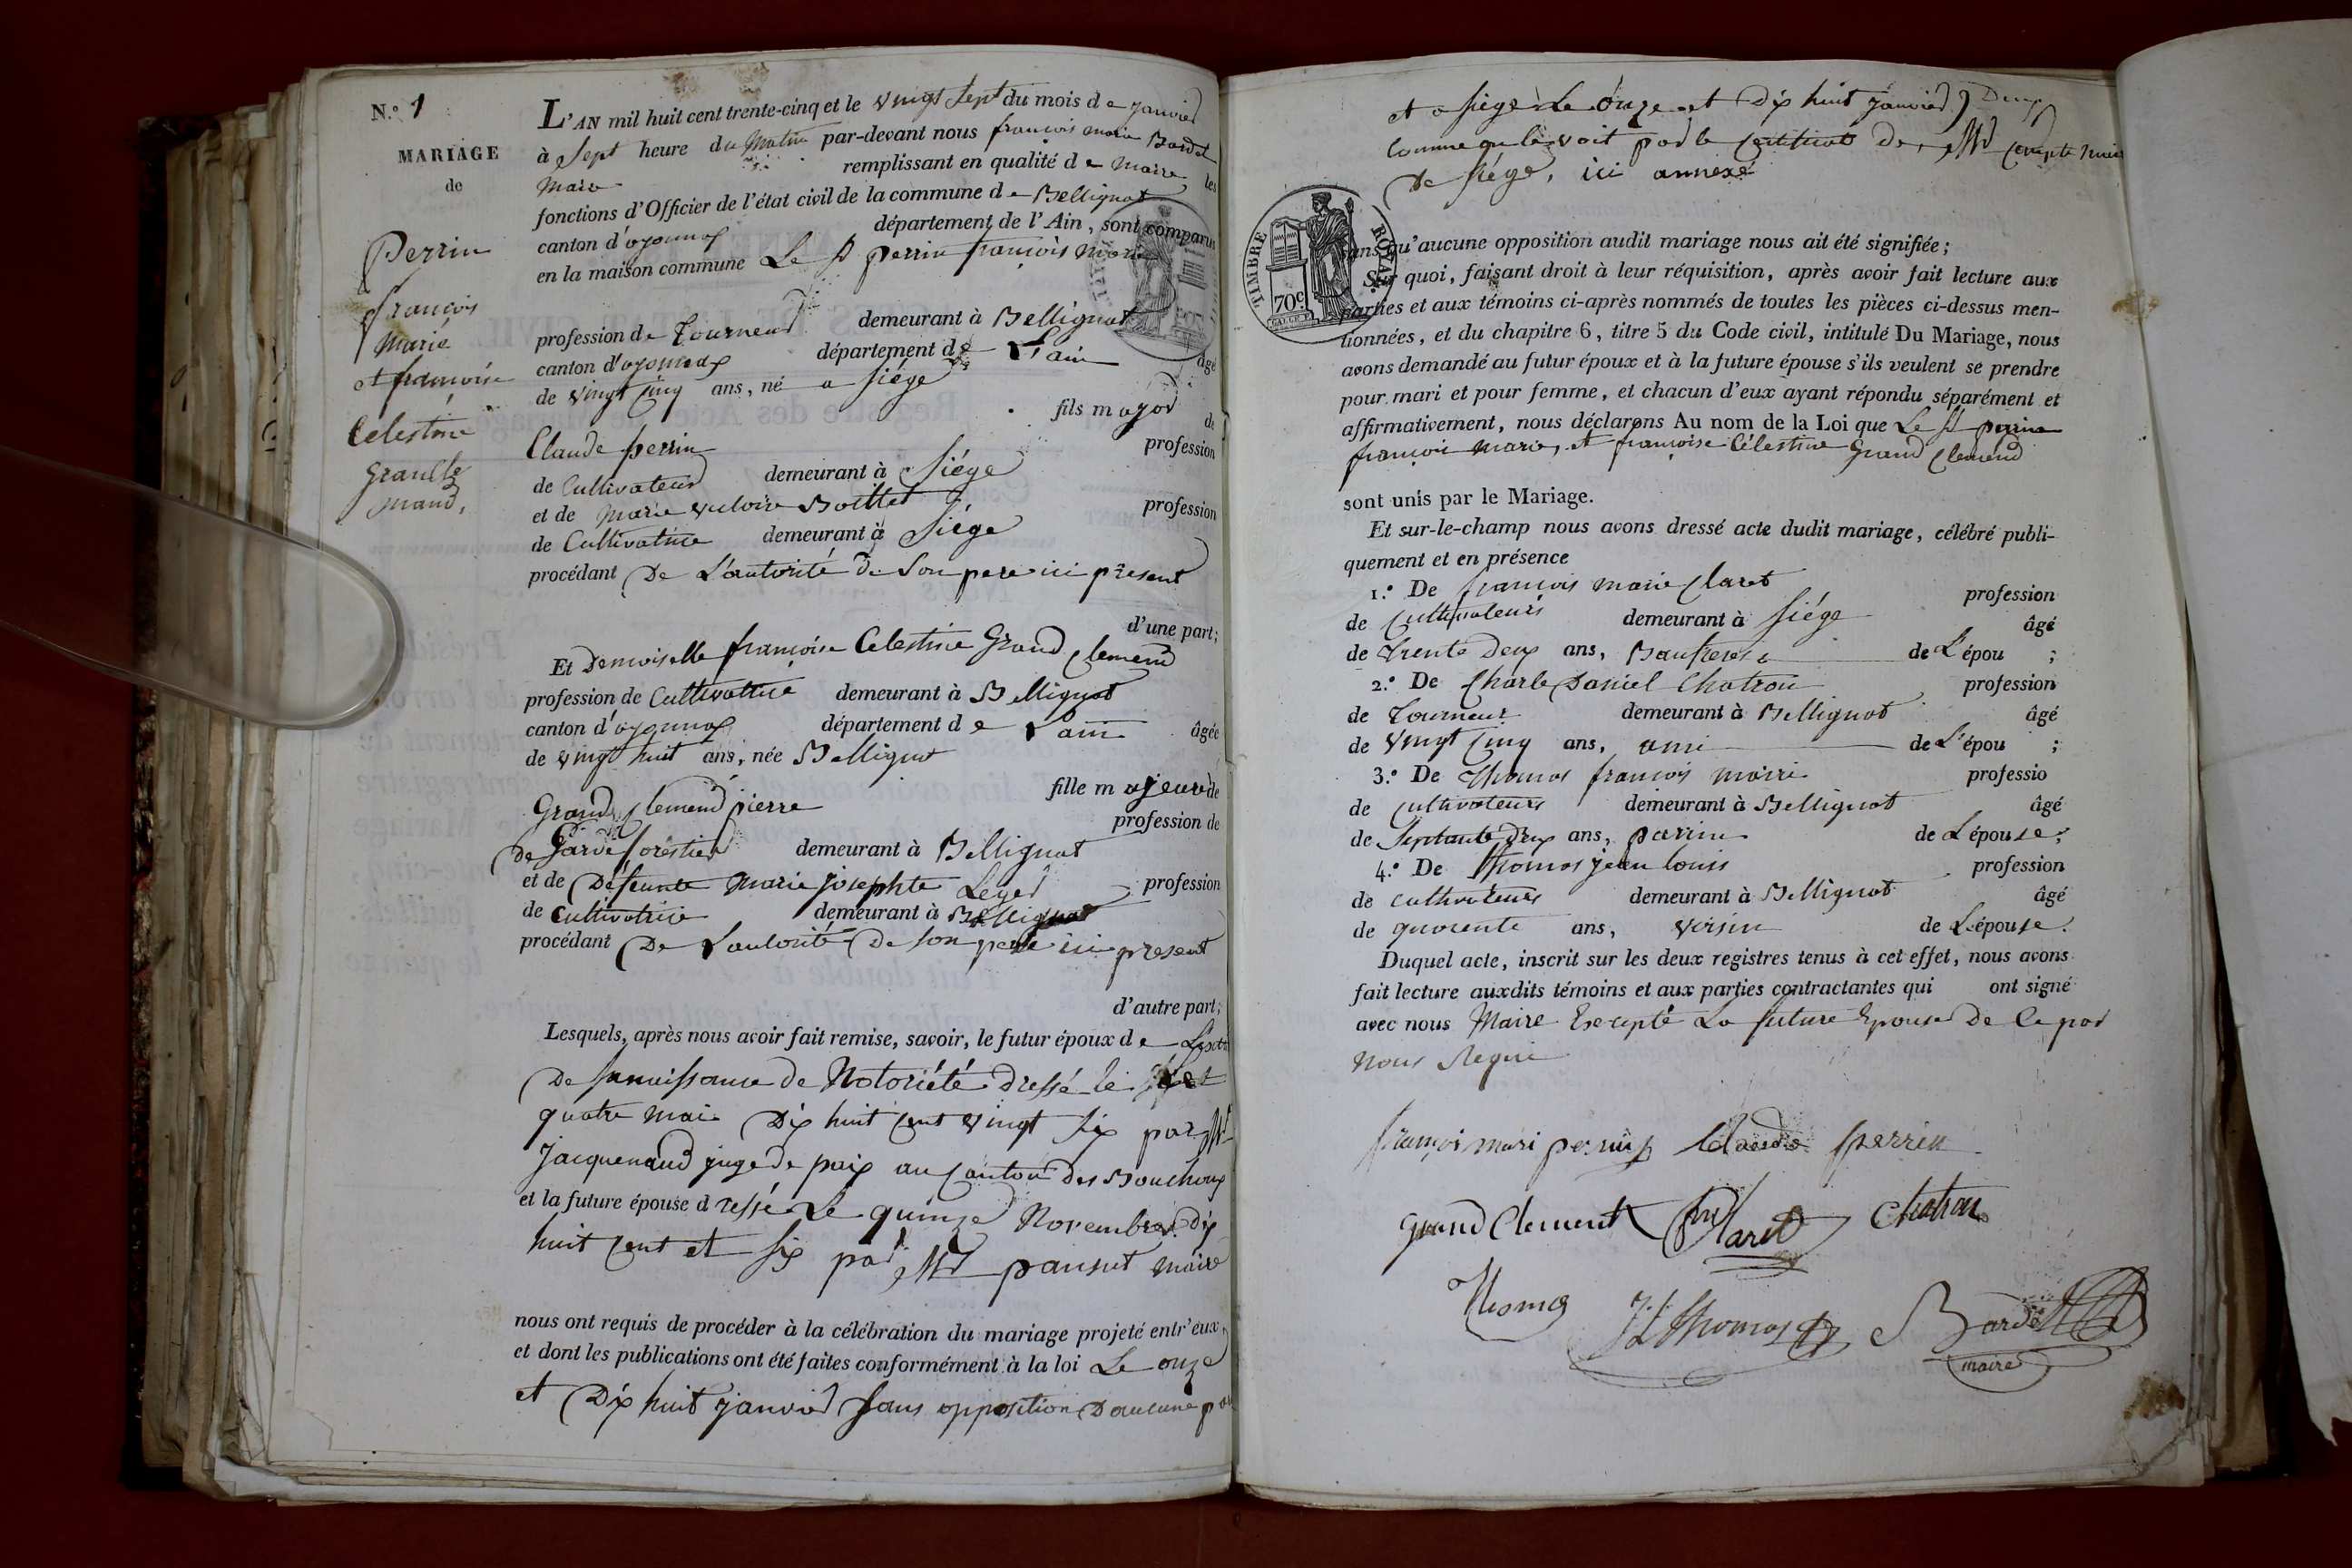 N.° 1
MARIAGE
de
Perrin
françois
Marie
et françoise
Celestine
Grand Cle
mand,
L'AN mil huit cent trente-cinq et le vingt sept du mois de janvier
à sept heure du Matin par-devant nous françois marie Bardet
Maire remplissant en qualité de Maire les
fonctions d'Officier de l'état civil de la commune de Bellignat
canton d'oyonnax département de l'Ain, sont comparus
en la maison commune Le Sr perrin françois marie
profession de Tourneur demeurant à Bellignat
canton d'oyonnax département de L'ain âgé
de vingt cinq ans, né a siége
fils major de
Claude perrin profession
de Cultivateur demeurant à Siége
et de Marie victoire Boillet profession
de Cultivatrice demeurant à Siége
procédant De L'autorité de Son pere ici présent
d'une part;
Et Demoiselle françoise Celestine Grand Clemend
profession de Cultivattrice demeurant à Bellignat
canton d'oyonnax département de L'ain âgée
de vingt huit ans, née Bellignat
fille majeure de
Grand Clemend pierre profession de
De Garde forestier demeurant à Bellignat
et de Défeunte Marie josephte Leger profession
de Cultivatrice demeurant à Bellignat
procédant De L'autorité De son pere ici présent
d'autre part;
Lesquels, après nous avoir fait remise, savoir, le futur époux de
De Notoriété dressé le
quatre mai Dix huit Cent vingt six par Mr
Jacquenaud juge de paix au Canton des Bouchoux
et la future épouse dressé Le quinze Novembre dix
huit Cent et six par Mr pansut maire
nous ont requis de procéder à la célébration du mariage projeté entr'eux,
et dont les publications ont été faites conformément à la loi Le onze
et Dix huit janvier Sans opposition D'aucune
et a siége Le onze et Dix huit janvier
Comme qu'le voit par le Certificat de Mr Comte
De siége, ici annexé
TIMBRE ROYAL
70c
sans qu'aucune opposition audit mariage nous ait été signifiée;
Sur quoi, faisant droit à leur réquisition, après avoir fait lecture aux
parties et aux témoins ci-après nommés de toutes les pièces ci-dessus men-
tionnées, et du chapitre 6, titre 5 du Code civil, intitulé Du Mariage, nous
avons demandé au futur époux et à la future épouse s'ils veulent se prendre
pour mari et pour femme, et chacun d'eux ayant répondu séparément et
affirmativement, nous déclarons Au nom de la Loi que Le Sr perrin
françois marie, et françoise Célestine Grand Clemend
sont unis par le Mariage.
Et sur-le-champ nous avons dressé acte dudit mariage, célébré publi-
quement et en présence
1.° De françois marie Claret profession
de Cultivateurs demeurant à Siége âgé
de trente Deux ans, Baufrere de L'épou ;
2.° De Charle Daniel Chatron profession
de Tourneur demeurant à Bellignat âgé
de vingt Cinq ans, ami de L'épou ;
3.° De Thomas françois marie professio
de Cultivateurs demeurant à Bellignat âgé
de Septante Deux ans, parrin de L'épouse;
4.° De Thomas jean louis profession
de cultivateurs demeurant à Bellignat âgé
de quarente ans, voisin de L'épouse.
Duquel acte, inscrit sur les deux registres tenus à cet effet, nous avons
fait lecture auxdits témoins et aux parties contractantes qui ont signé
avec nous Maire Excepté La future Epouse De Ce par
Nous Requi
françoi mari perrin Claude perrin
Grand Clement Claret Chatron
Thomas JL thomas Bardet
maire